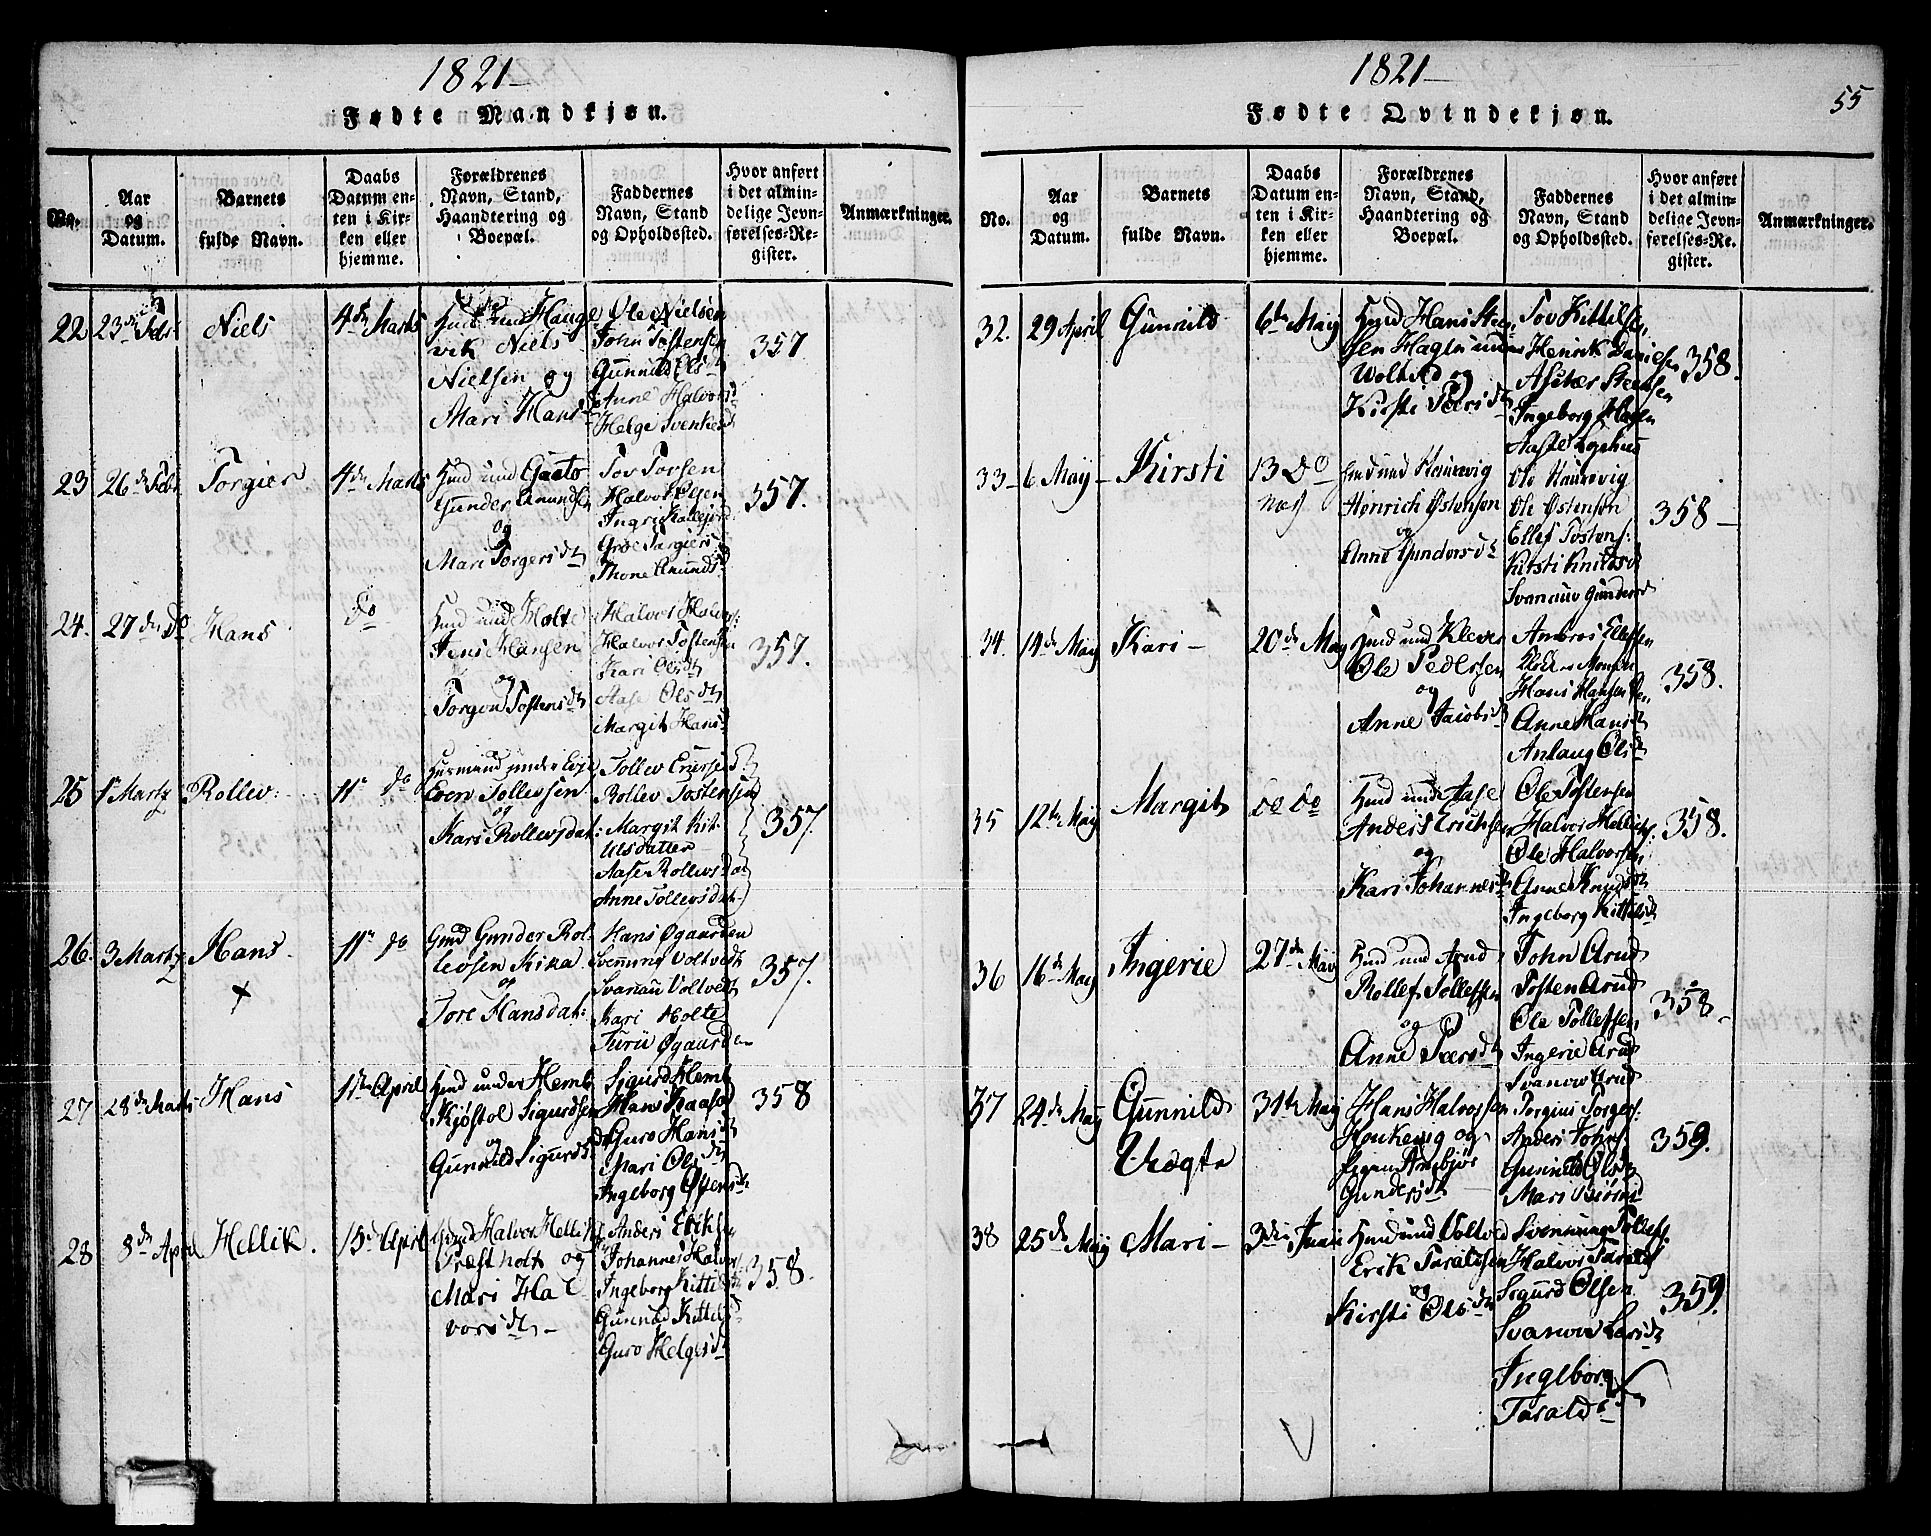 1821
Fødte Mandkjøn.
No.
Aar
og
Datum.
Barnets
fulde Navn.
Daabs
Datum en-
ten i Kir-
ken eller
hjemme.
Forældrenes
Navn, Stand,
Haandtering og
Boepæl.
Faddernes
Navn, Stand
og Opholdssted.
Hvor anført
i det almin-
delige Jevn-
førelses-Re-
gister.
Anmærkninger.
22
23de Febr
Niels
4de Marts
Hauge
vik Niels
Nielsen og
Mari Hansd
Ole Nielsen
John Tostensen
Gunnild Olsd
Anne Halvorsd
Helge Svenkesd
357
23
26de Febr
Torgier
4de Marts
Hmd und
Gunder Amundsen
og
Mari Torgersdt
Tov Torsen
Halvor Olsen
Ingri
Groe Torgiers
Thone Amundsd
357.
24.
27de do
Hans
do
Hmd und Holte
Jens Hansen
og
Torgon Tostensdt
Halvor Halvors:
Halvor Tostensen
Kari Olsdt
Aase Olsdt
Margit Hansd
357.
25
1 Marty
Rollev:
11te do
Huusmand under
Even Tollevsen
og
Kari Rollevsdat:
Tollev
Rollev Tostensen
Margit Kit-
ulsdatter
Aase Rollevsdat
Anne Tollevsdat
357.
26.
3 Marty
Hans.
+
11te do
Gmd Gunder Rol-
levsen Kika
og
Tore Hansdat:
Hans Øgaarden
Svennung Voltvedt
Svanau Voltvedt
Kari Holte
Turii Øgaarden
357.
27
28de Marts
Hans
1te April
Hmd under Hemb
Kjøstol Sigurdsen
og
Gunnild Sigurdsd
Sigurd Hemb
Hans Kaasa
Guro Hansdt
Mari Olsdt
Ingeborg Ostensdt
358
28
8de April
Hellik.
15de April
Gmd Halvor Hellik
Præstholt og
Mari Hal
vorsdt
Anders Eriksen
Johannes Halvors
Ingeborg Kittilsdt
Gunnild Kittilsd
Guro Helgesdt
358.
1821
55
Fødte Qvindekjøn.
No.
Aar
og
Datum.
Barnets
fulde Navn.
Daabs
Datum en-
ten i Kir-
ken eller
hjemme.
Forældrenes
Navn, Stand,
Haandtering og
Boepæl.
Faddernes
Navn, Stand
og Opholdssted.
Hvor anført
i det almin-
delige Jevn-
førelses-Re-
gister.
Anmærkninger.
32.
29 April
Gunnild
6te May
Hmd Hans Steen-
sen Hagen under
Woltved og
Kirsti Peersdt
Tov Kittilsen
Henrik Danielsen
Aslak Steensen
Ingeborg Hagen
358.
33
6 May
Kirsti
13 do
Hmd und
Henrich Østensen
og
Anne Gundersdt
Ole
Ole Østensen
Ellef Tostens:
Kirsti Knudsd
Svanauv Gundersd
358
34.
14de May
Kari
20de May
Hmd und Klever
Ole Pedersen
og
Anne Jacobsdt
Ambros Ellefsen
Hans Hansen
Anne Hansdt
Anlaug Olsdt
358.
35
12te May
Margit
do do
Hmd under Aase
Anders Erichsen
og
Kari Johannesdt
Ole Tostensen
Halvor Hellichs:
Ole Halvorsen
Anne Knudsdt
Ingeborg Kittelsdt
358.
36
16de May
Ingerie
27de May
Hmd und Arud
Rollef Tollefsen
og
Anne Peersdt
John Arud
Tosten Arud
Ole Tollefsen
Ingerie Arud
Svanow Arud
358.
37
24de May
Gunnild
31te May
Hans Halvorsen
og
Gundersdt
Torgius Torgers:
Anders Johns:
Gunnild Olsdt
Mari Biørnsd
359.
38
25de May
Mari
3die Junii
Hmd und Voltved
Erik Taraldsen
og
Kirsti Olsdt
Svennung Tollefs.
Halvor Taralds
Sigurd Olsen.
Svanow Larsdt
Ingeborg
Taralds
359.